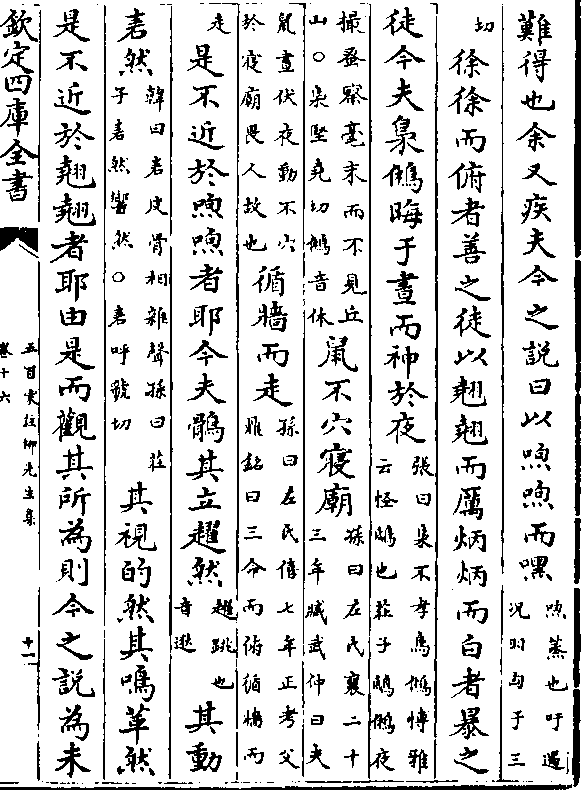 難得也余又疾夫今之說曰以喣喣而嘿喣蒸也吁遇況羽勻于三
切徐徐而俯者善之徒以翹翹而厲炳炳而白者暴之
徒今夫梟鵂晦于晝而神於夜張曰梟不孝鳥鵂博雅云怪鴟也莊子鴟鵂夜
撮蚤察毫末而不見丘山○梟堅堯切鵂音休鼠不穴寢廟孫曰左氏襄二十三年臧武仲曰夫
鼠晝伏夜動不穴於寢廟畏人故也循牆而走孫曰左氏僖七年正考父鼎銘曰三命而俯循牆而
走是不近於喣喣者耶今夫鶻其立趯然趯跳也音逖其動
砉然韓曰砉皮骨相離聲孫曰莊子砉然響然○砉呼虢切其視的然其鳴革然
是不近於翹翹者耶由是而觀其所為則今之說為未
欽定四庫全書
五百家註柳先生集
卷十六
十一